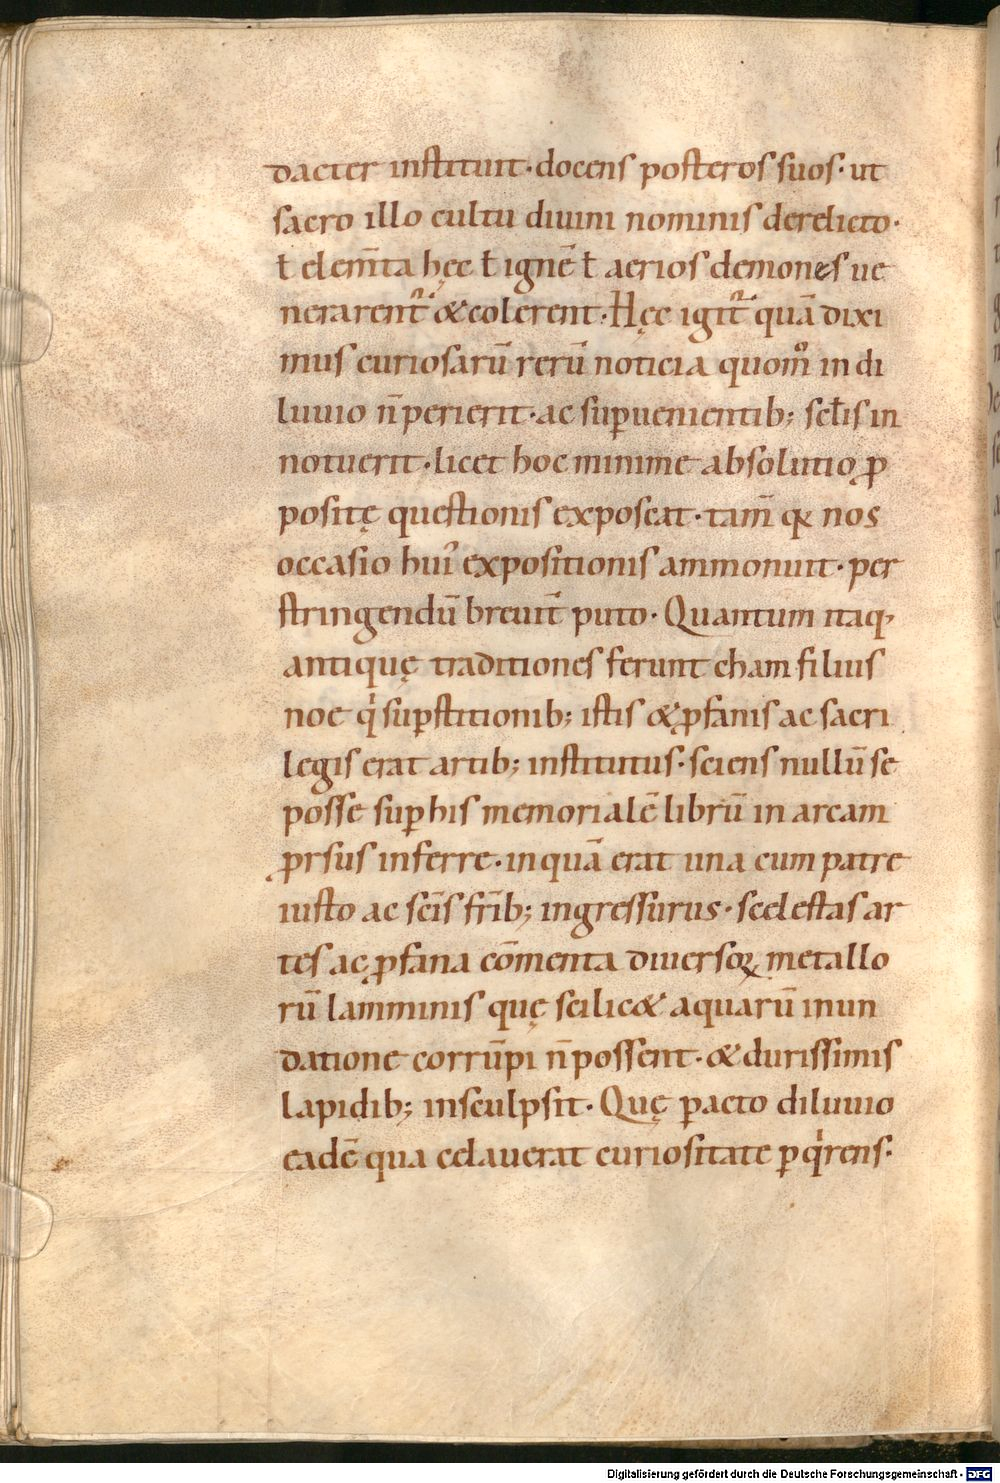 dacter instituit · docens posteros suos · ut
sacro illo cultu diuini nominis derelicto ·
ł elem̄ta hęc ł ignē ł aerios demones ue
nerarent᷑ & colerent · Hęc igit᷑ quā dixi
mus curiosarū rerū noticia quom̊ in di
luuio n̄ perierit · ac sup̱uenientib; scłis in
notuerit · licet hoc minime absolutio ꝓ
positę questionis exposcat · tam̄ qꝫ nos
occasio huiꝰ expositionis ammonuit · per
stringendū breuit᷑ puto · Quantum itaq,
antiquę traditiones ferunt cham filius
noe qͥ sup̱stitionib; istis & ꝓfanis ac sacri
legis erat artib; institutus · sciens nullū se
posse sup̱ his memorialē librū in arcam
ꝓrsus inferre · in quā erat una cum patre
iusto ac sc̄is fr̄ib; ingressurus · scelestas ar
tes ac ꝓfana cōmenta diuersoꝝ metallo
rū lamminis quę scilic& aquarū inun
datione corrūpi n̄ possent · & durissimis
lapidib; insculpsit · Quę ꝑacto diluuio
eadē qua celauerat curiositate ꝑqͥrens ·
Digitalisierung gefördert durch die Deutsche Forschungsgemeinschaft - DFG